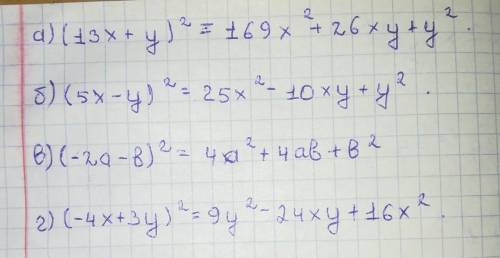 а) (13x + y)² = 169x² + 26xy + y².
б) (5x - y)² = 25x² - 10xy + y².
в) (-2a - в)² = 4a² + 4aв + в²
г) (-4x + 3y)² = 9y² - 24xy + 16x².